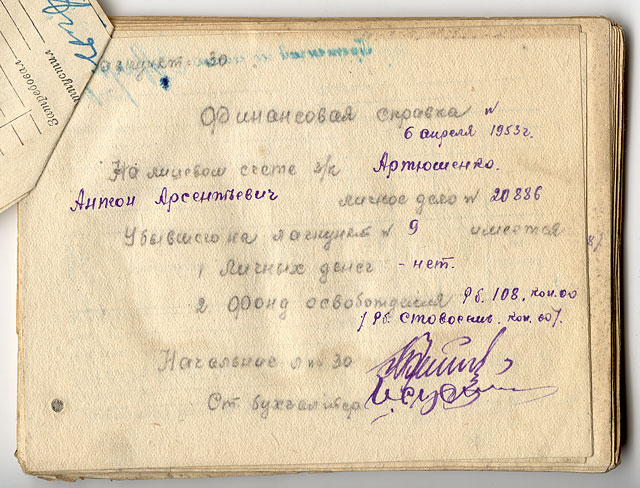 Затребовал
Отпустил
Лагпункт 30
Финансовая справка №
6 апреля 1953г.
На лицевом счете з/к Артюшенко.
Антон Арсентьевич личное дело № 20886
Убывшего на лагпункт № 9 имеется
1 Личных денег - нет.
2 Фонд освобождения Рб. 108, коп.00
/Рб. стовосемь. коп. 00/.
Начальник л/п 30
Ст бухгалтер